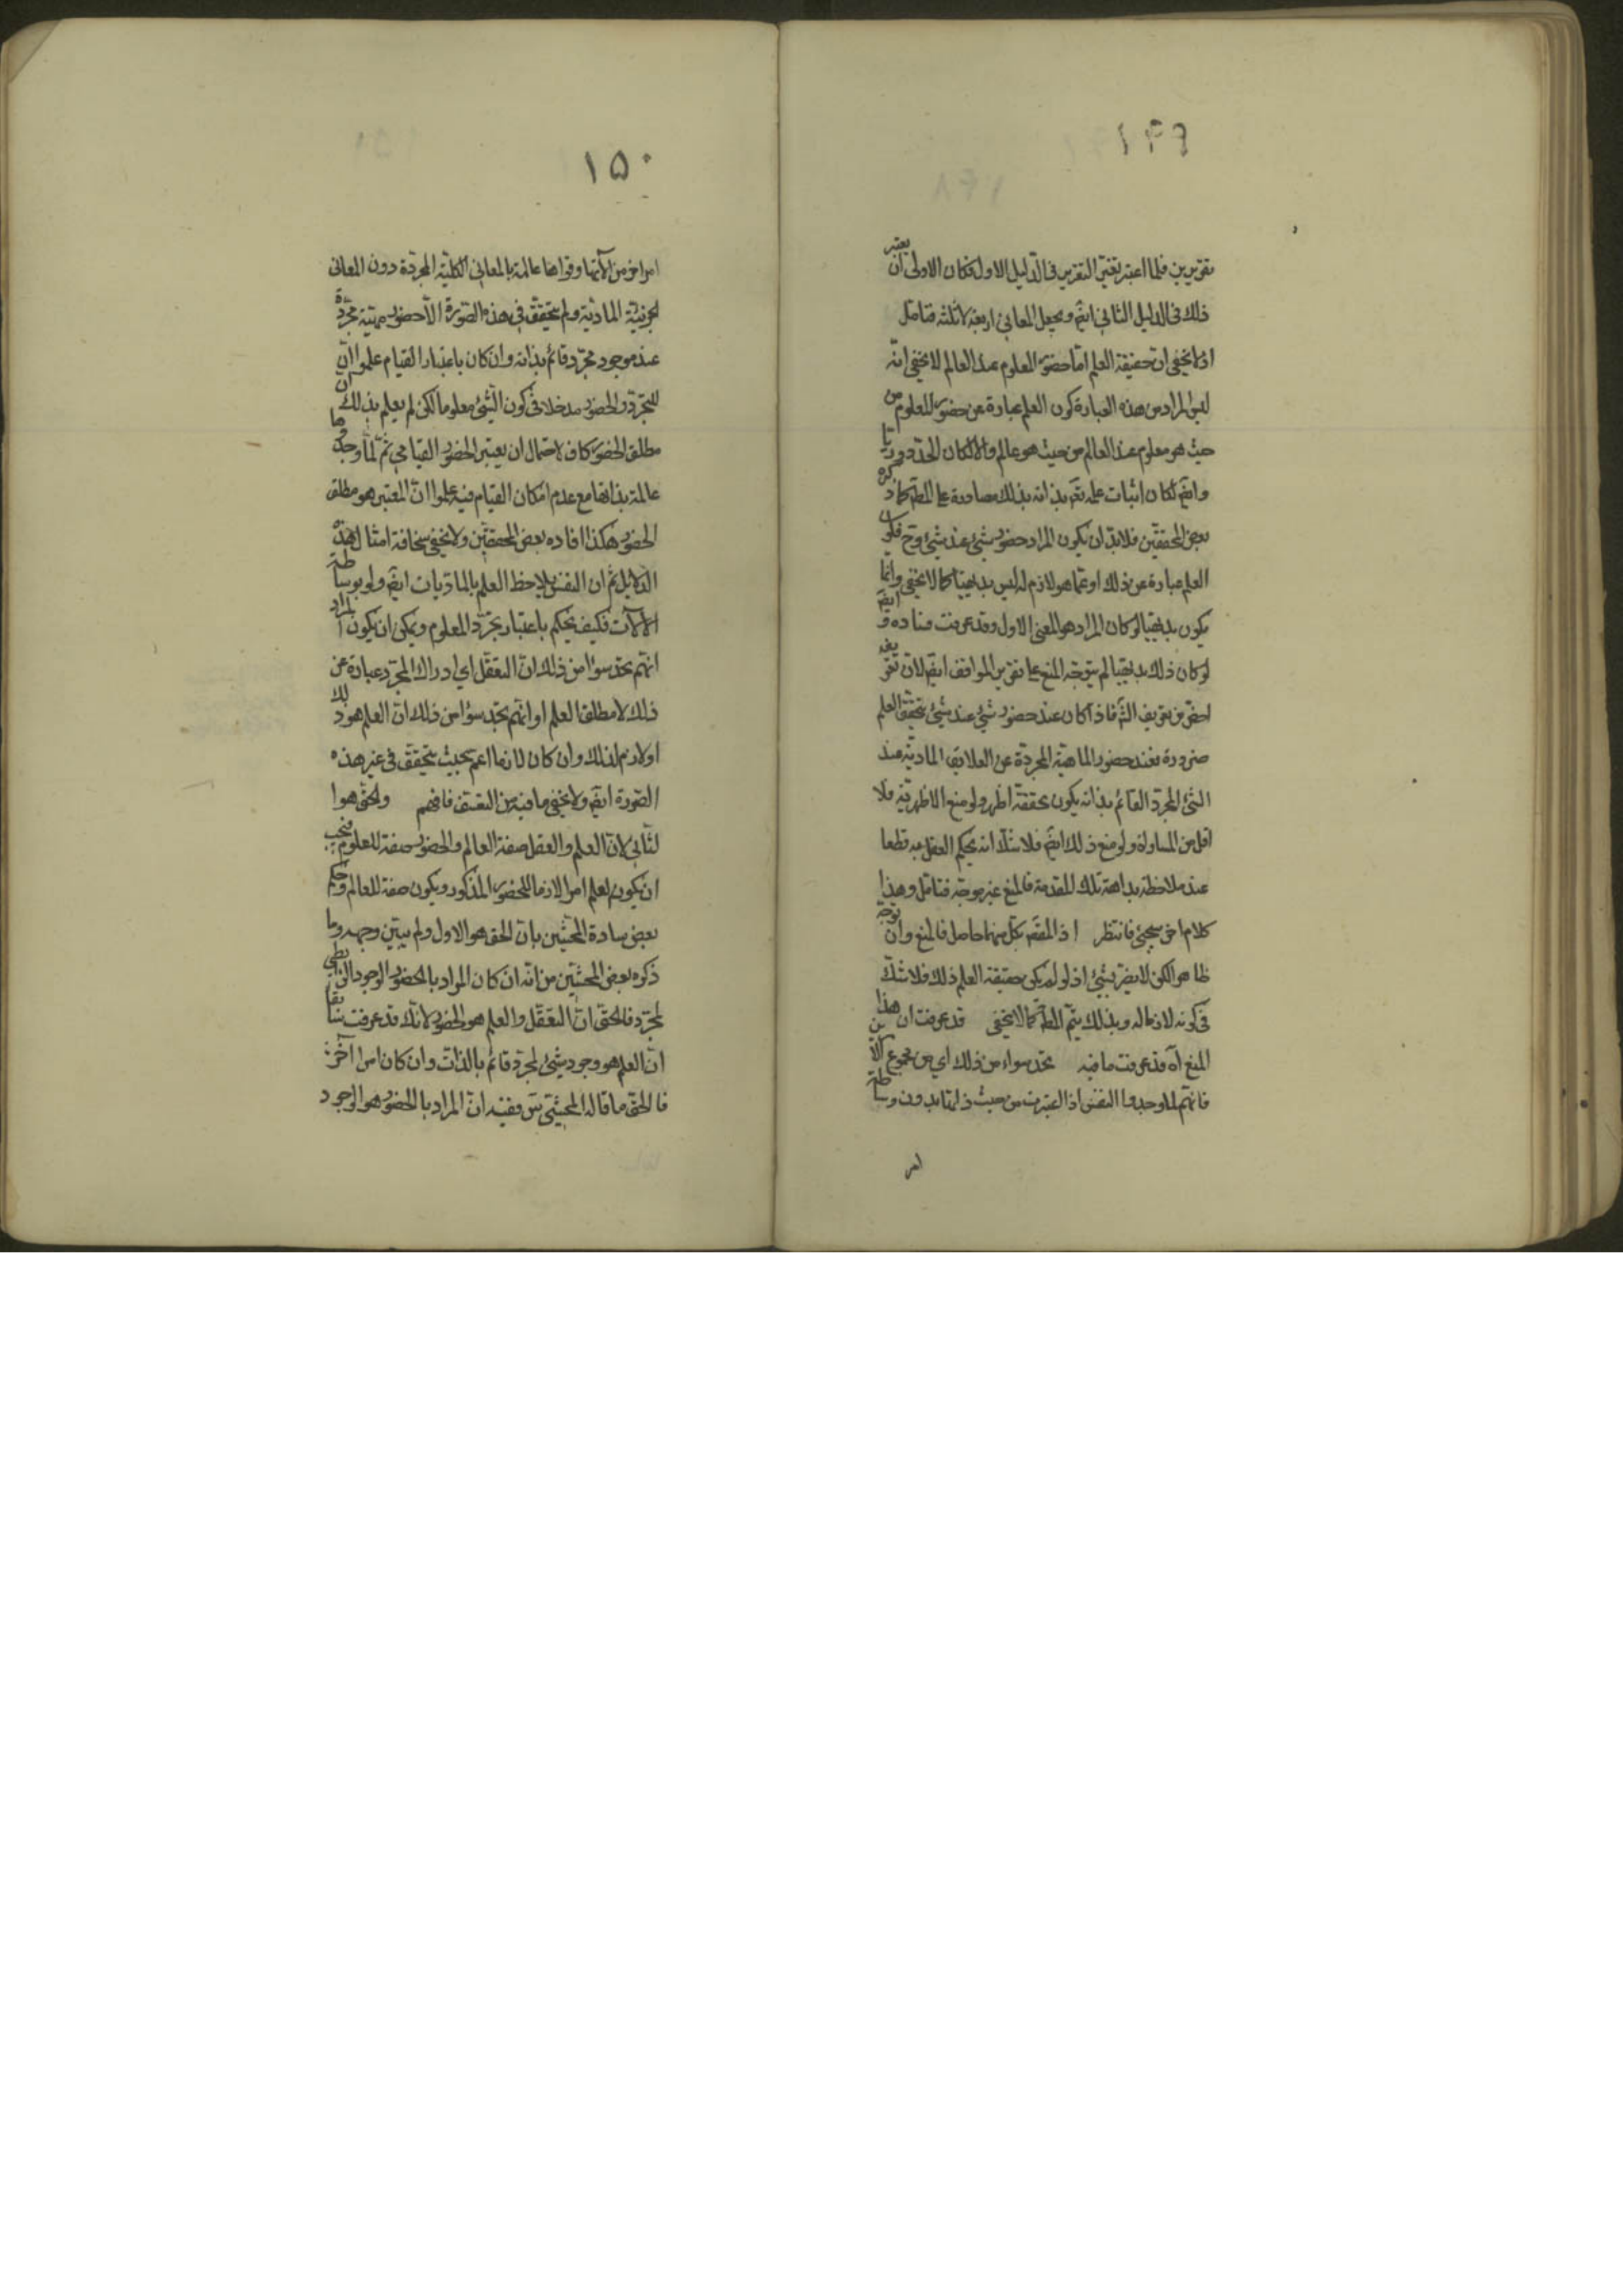 ١٤٩
تقريرين فلما اعتبر تغيّر التقرير في الدليل الاول فكان الاولى ان يعتبر
ذلك في الدليل الثاني ايضً ويجعل المعاني اربعة لا ثلثة فتامل
اذ لا يخفى ان حقيقة العلم اما حضور المعلوم عند العالم لا يخفى انّه
ليس المراد من هذه العبارة كون العلم عبارة عن حضور المعلوم من
حيث هو معلوم عند العالم من حيث هو عالم والا لكان التحديد دوريا
وايضً لكان اثبات علمه تعً بذاته بذلك مصادرة على المطً كما ذكره
بعض المحققين فلابدّ ان يكون المراد حضور شيئ عند شيئ وح فكون
العلم عبارة عن ذلك او عما هو لازم له ليس بديهيا كما لا يخفى وانّما
يكون بديهيا لو كان المراد هو المعنى الاول وقد عرفت فساده و ايضً
لو كان ذلك بديهيا لم يتوجه المنع على تقرير المواقف ايضً لان
اخصّ من تعريف الشً فاذا كان عند حضور شيئ عند شيئ يتحقق العلم
ضرورة فعند حضور الماهية المجردة عن العلايق المادية عند
الشئ المجرد القائم بذاته يكون تحققه اظهر ولو منع الاظهرية فلا
اقل من المساواة ولو منع ذلك ايضً فلا شك انه يحكم العقل به قطعا
عند ملاحظة بداهة تلك المقدمة فالمنع غير موجّه فتامل وهذا
كلام اخر سيجيئ فانتظر اذ المقصً بكل منهما حاصل فالمنع وان توجّه
ظاهرا لكن لا يضر بشيئ اذ لو لم يكن حقيقة العلم ذلك فلا شكّ
في كونه لازما له وبذلك يتم المطً كما لا يخفى قد عرفت ان هذا
المنع آه قد عرفت ما فيه تحدسوا من ذلك اي من مجموع
فانهم لما وجدوا النفس اذا اعتبرت من حيث ذاتها بدون وساطة
امر
١٥٠
امر اخر من الآتها وقواها عالمة بالمعاني الكلية المجردة دون المعاني
الجزئية المادية ولم يتحقق في هذه الصورة الا حضور مهية مجردة
عند موجود مجرّد قائم بذاته وان كان باعتبار القيام علموا انّ
للتجرّد والحضور مدخلا في كون الشئ معلوما لكن لم يعلم بذلك ان
مطلق الحضور كاف لاحتمال ان يعتبر الحضور القيامي ثم لما وجدوها
عالمة بذاتها مع عدم امكان القيام فيه علموا ان المعتبر هو مطلق
الحضور هكذا افاده بعض المحققين ولا يخفى سخافة امثال هذه
الدلايل ثم ان النفس يلاحظ العلم بالماديات ايضً ولو بوساطة
الآلات فكيف يحكم باعتبار تجرّد المعلوم ويمكن ان يكون المراد
انهم تحدسوا من ذلك ان التعقّل اي ادراك المجرد عبارة عن
ذلك لا مطلق العلم او انهم تحدسوا من ذلك ان العلم هو ذلك
او لازم لذلك وان كان لازما اعم بحيث يتحقق في غير هذه
الصورة ايضً ولا يخفى ما فيه من التعسّف فافهم والحقّ هو ا
لثاني لان العلم والعقل صفة العالم والحضور صفة للمعلوم فيجب
ان يكون العلم امرا لازما للحضور المذكور ويكون صفة للعالم وحكم
بعض سادة المحشين بان الحق هو الاول ولم يبيّن وجهه وما
ذكره بعض المحشّين من انه ان كان المراد بالحضور الوجود الرابطي
لمجرّد فالحق ان التعقّل والعلم هو الحضور لانك قد عرفت سابقا
ان العلم هو وجود شيئ لمجرد قائم بالذات وان كان امرا آخر
فالحق ما قاله المحشّي سّ ففيه ان المراد بالحضور هو الوجود